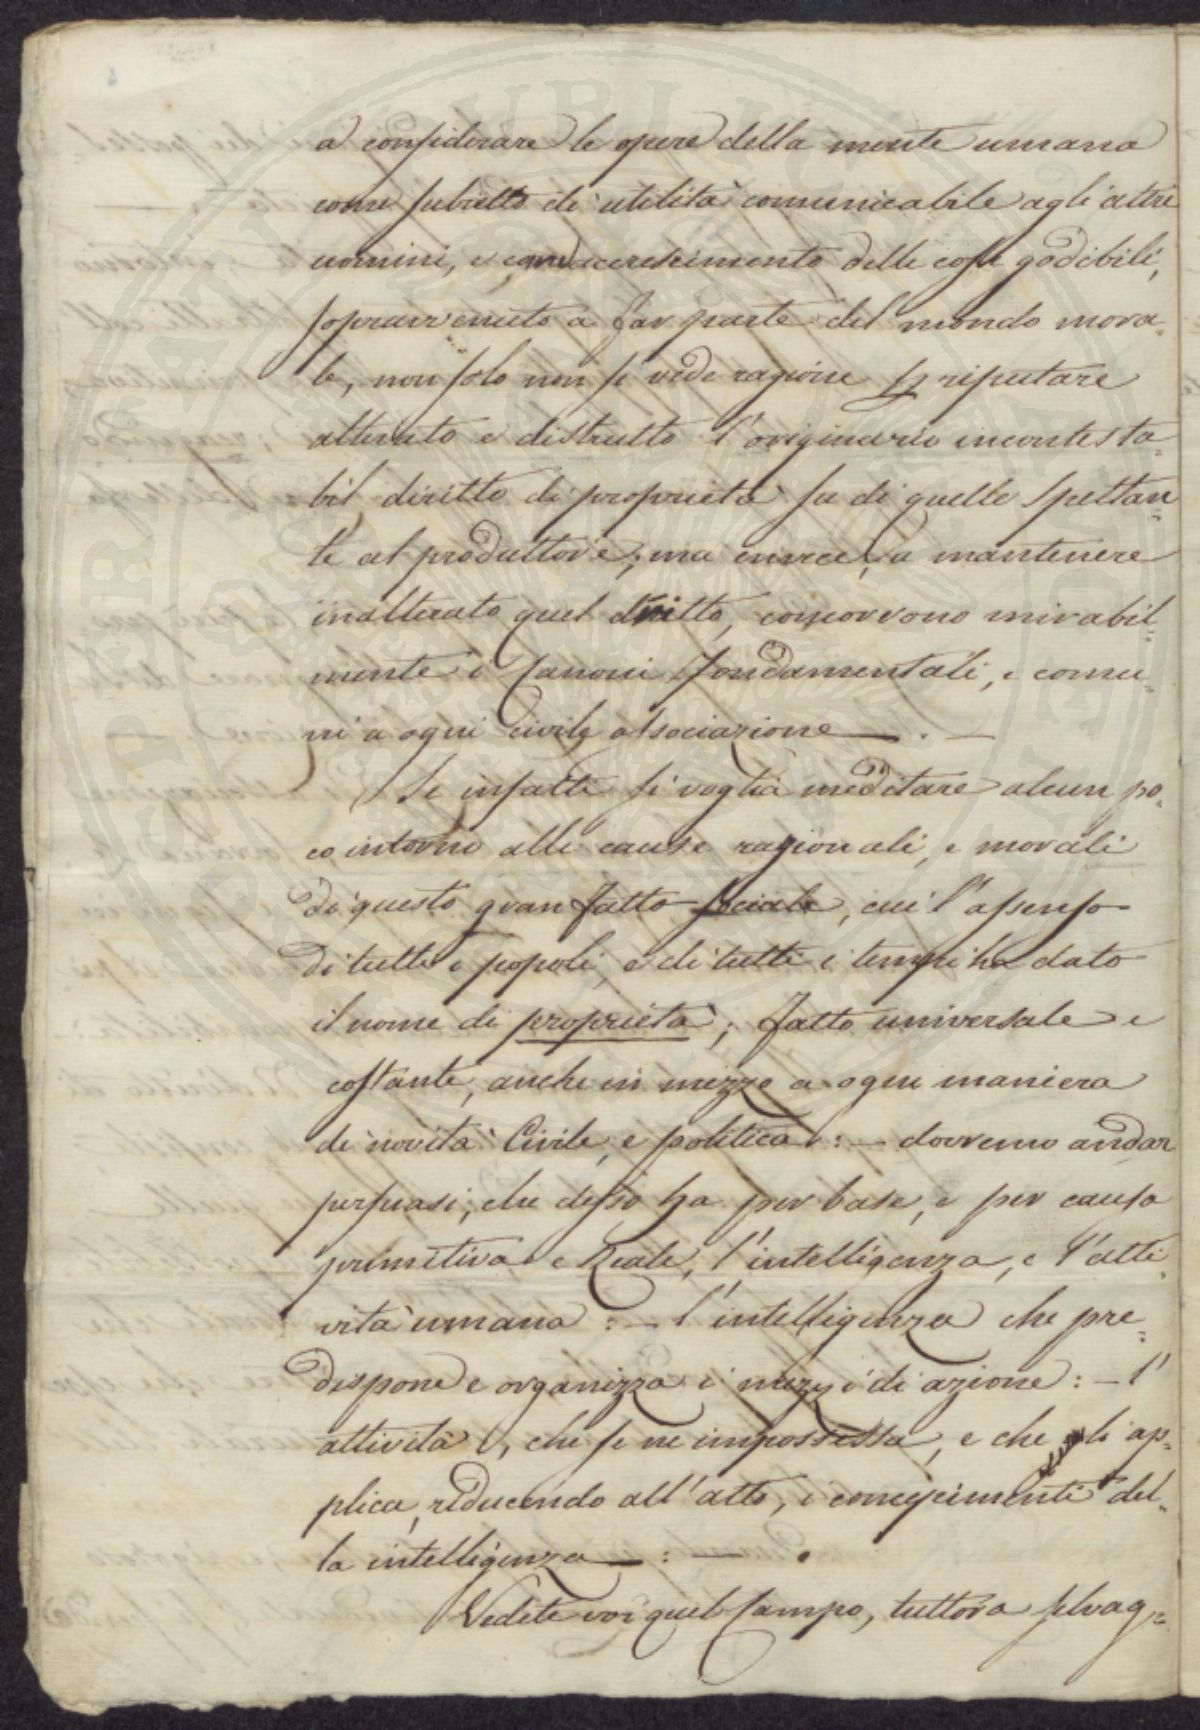 a considerare le opere della mente umana
come subietto di utilità comunicabile agli altri
uomini, e qual accrescimento delle cose godibili,
sopravvenuto a far parte del mondo mora=
le, non solo non si vede ragione p riputare
alterato e distrutto l'originario incontesta=
bil diritto di proprietà su di quelle spettan=
te al produttore; ma invece, a mantenere
inalterato quel dritto, concorrono mirabil=
mente i canoni fondamentali, e comu=
ni a ogni civile associazione — . —
Se infatti si voglia meditare alcun po=
co intorno alle cause razionali, e morali
di questo gran fatto sociale, cui l'assenso
di tutti i popoli, e di tutti i tempi ha dato
il nome di proprietà; fatto universale e
costante, anche in mezzo a ogni maniera
di novità Civile, e politica : — dovremo andar
persuasi, che desso ha per base, e per causa
primitiva e Reale, l'intelligenza, e l'atti=
vità umana : — l'intelligenza che pre=
dispone e organizza i mezzi di azione : — l'
attività, che se ne impossessa, e che li ap=
plica, riducendo all'atto, i concepimenti del=
la intelligenza — : — .
Vedete voi quel Campo, tuttora selvag=